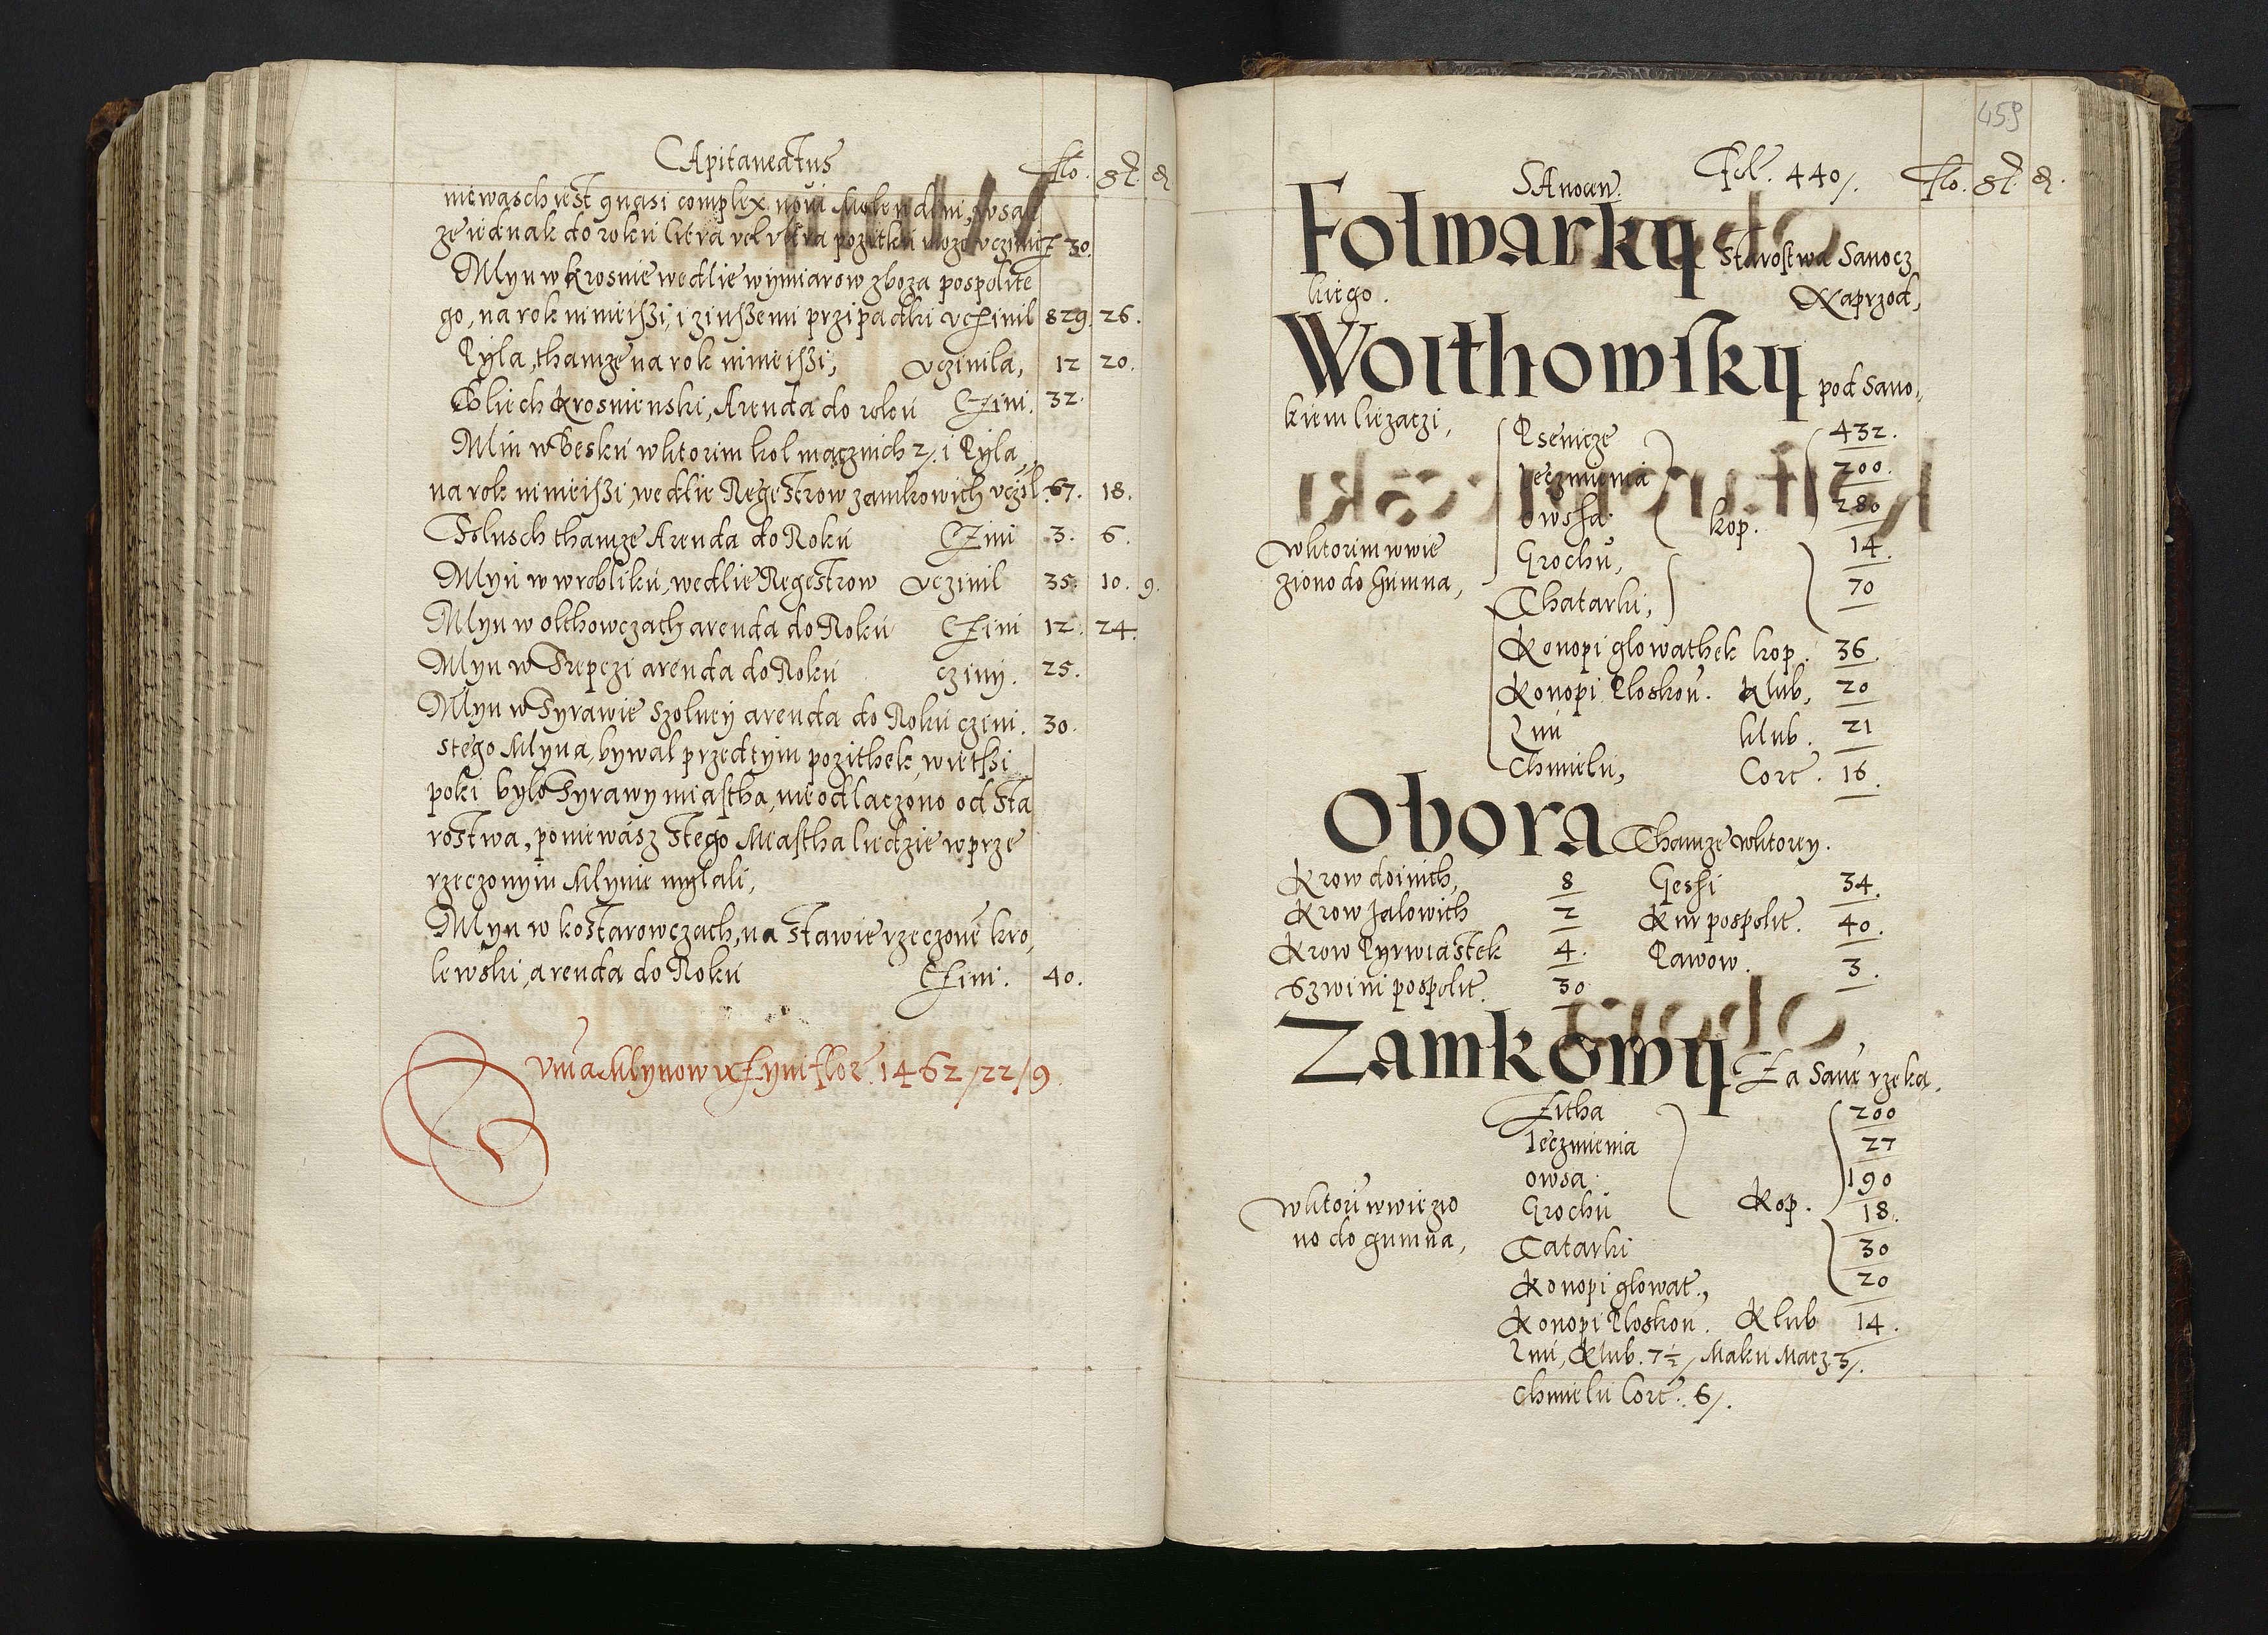 CApitaneatus Flo. gr. d.
niewasch iest quasi complex noui Molendini, wsak
ze iednak do roku litra vel vltra pozitku moze vczinic f 30.
Mlyn w krosnie wedlie wymiarow zboza pospolite
go, na rok ninieissi, i zinssemi przipadki vczinil 829. 26.
Pyla, thamze na rok ninieissi, vczinila, 12 20.
Bliech krosnienski, Arenda do roku Czini. 32.
Mlin w Besku w ktorim kol mącznich 2/. i Pyla
na rok ninieissi, wedlie Regestrow zamkowich vczil. 67. 18.
Folusch thamze Arenda do Roku Czini 3. 6.
Mlyn w wrobliku, wedlie Regestrow vczinil 35. 10. 9.
Mlyn w olthowczach arenda do Roku Czini 12. 24.
Mlyn w Trepczi arenda do Roku cziny. 25.
Mlyn w Tyrawie Szolney arenda do Roku czini. 30.
stego Mlyna, bywal przedtym pozithek, wietssi
poki bylo Tyrawy miastha, nie odlaczono od Sta
rostwa, poniewasz stego Miastha liudzie wprze
rzeczonyim Mlynie mylali,
Mlyn w kostarowczach, na stawie rzeczone kro,
lewski, arenda do Roku Czini. 40.
Suma Mlynow vczyni flor. 1462/22/9
459
SAnocen. Fol. 440/. Flo. gr. d.
Folwarky Starostwa Sanocz
kiego. Naprzod,
Woithowsky pod Sano,
kiem liezaczi,
Psenicze 432.
Ieczmienia 200.
owssa kop. 280
w ktorim wwie Grochu, 14.
ziono do gumna, Thatarki, 70
Konopi glowathek kop. 36.
Konopi Ploskon. Klub, 20
Lnu klub. 21
Chmielu, Corc. 16.
Obora Thamze w ktorey.
Krow doinich, 8 Gessi 34.
Krow Jalowich 2 Kur pospolit. 40.
Krow Pyrwiastek 4. Pawow. 3.
Szwini pospolit. 30
Zamkowy Za Sane rzeka.
Zitha 200
Ieczmienia 27
owsa 190
w ktori wwiezio Grochu Kop. 18.
no do gumna, Tatarki 30
Konopi glowat., 20
Konopi Ploskon. Klub 14.
Lnu, Klub. 7½/ Maku Macz. 3/.
Chmielu Corc. 6/.